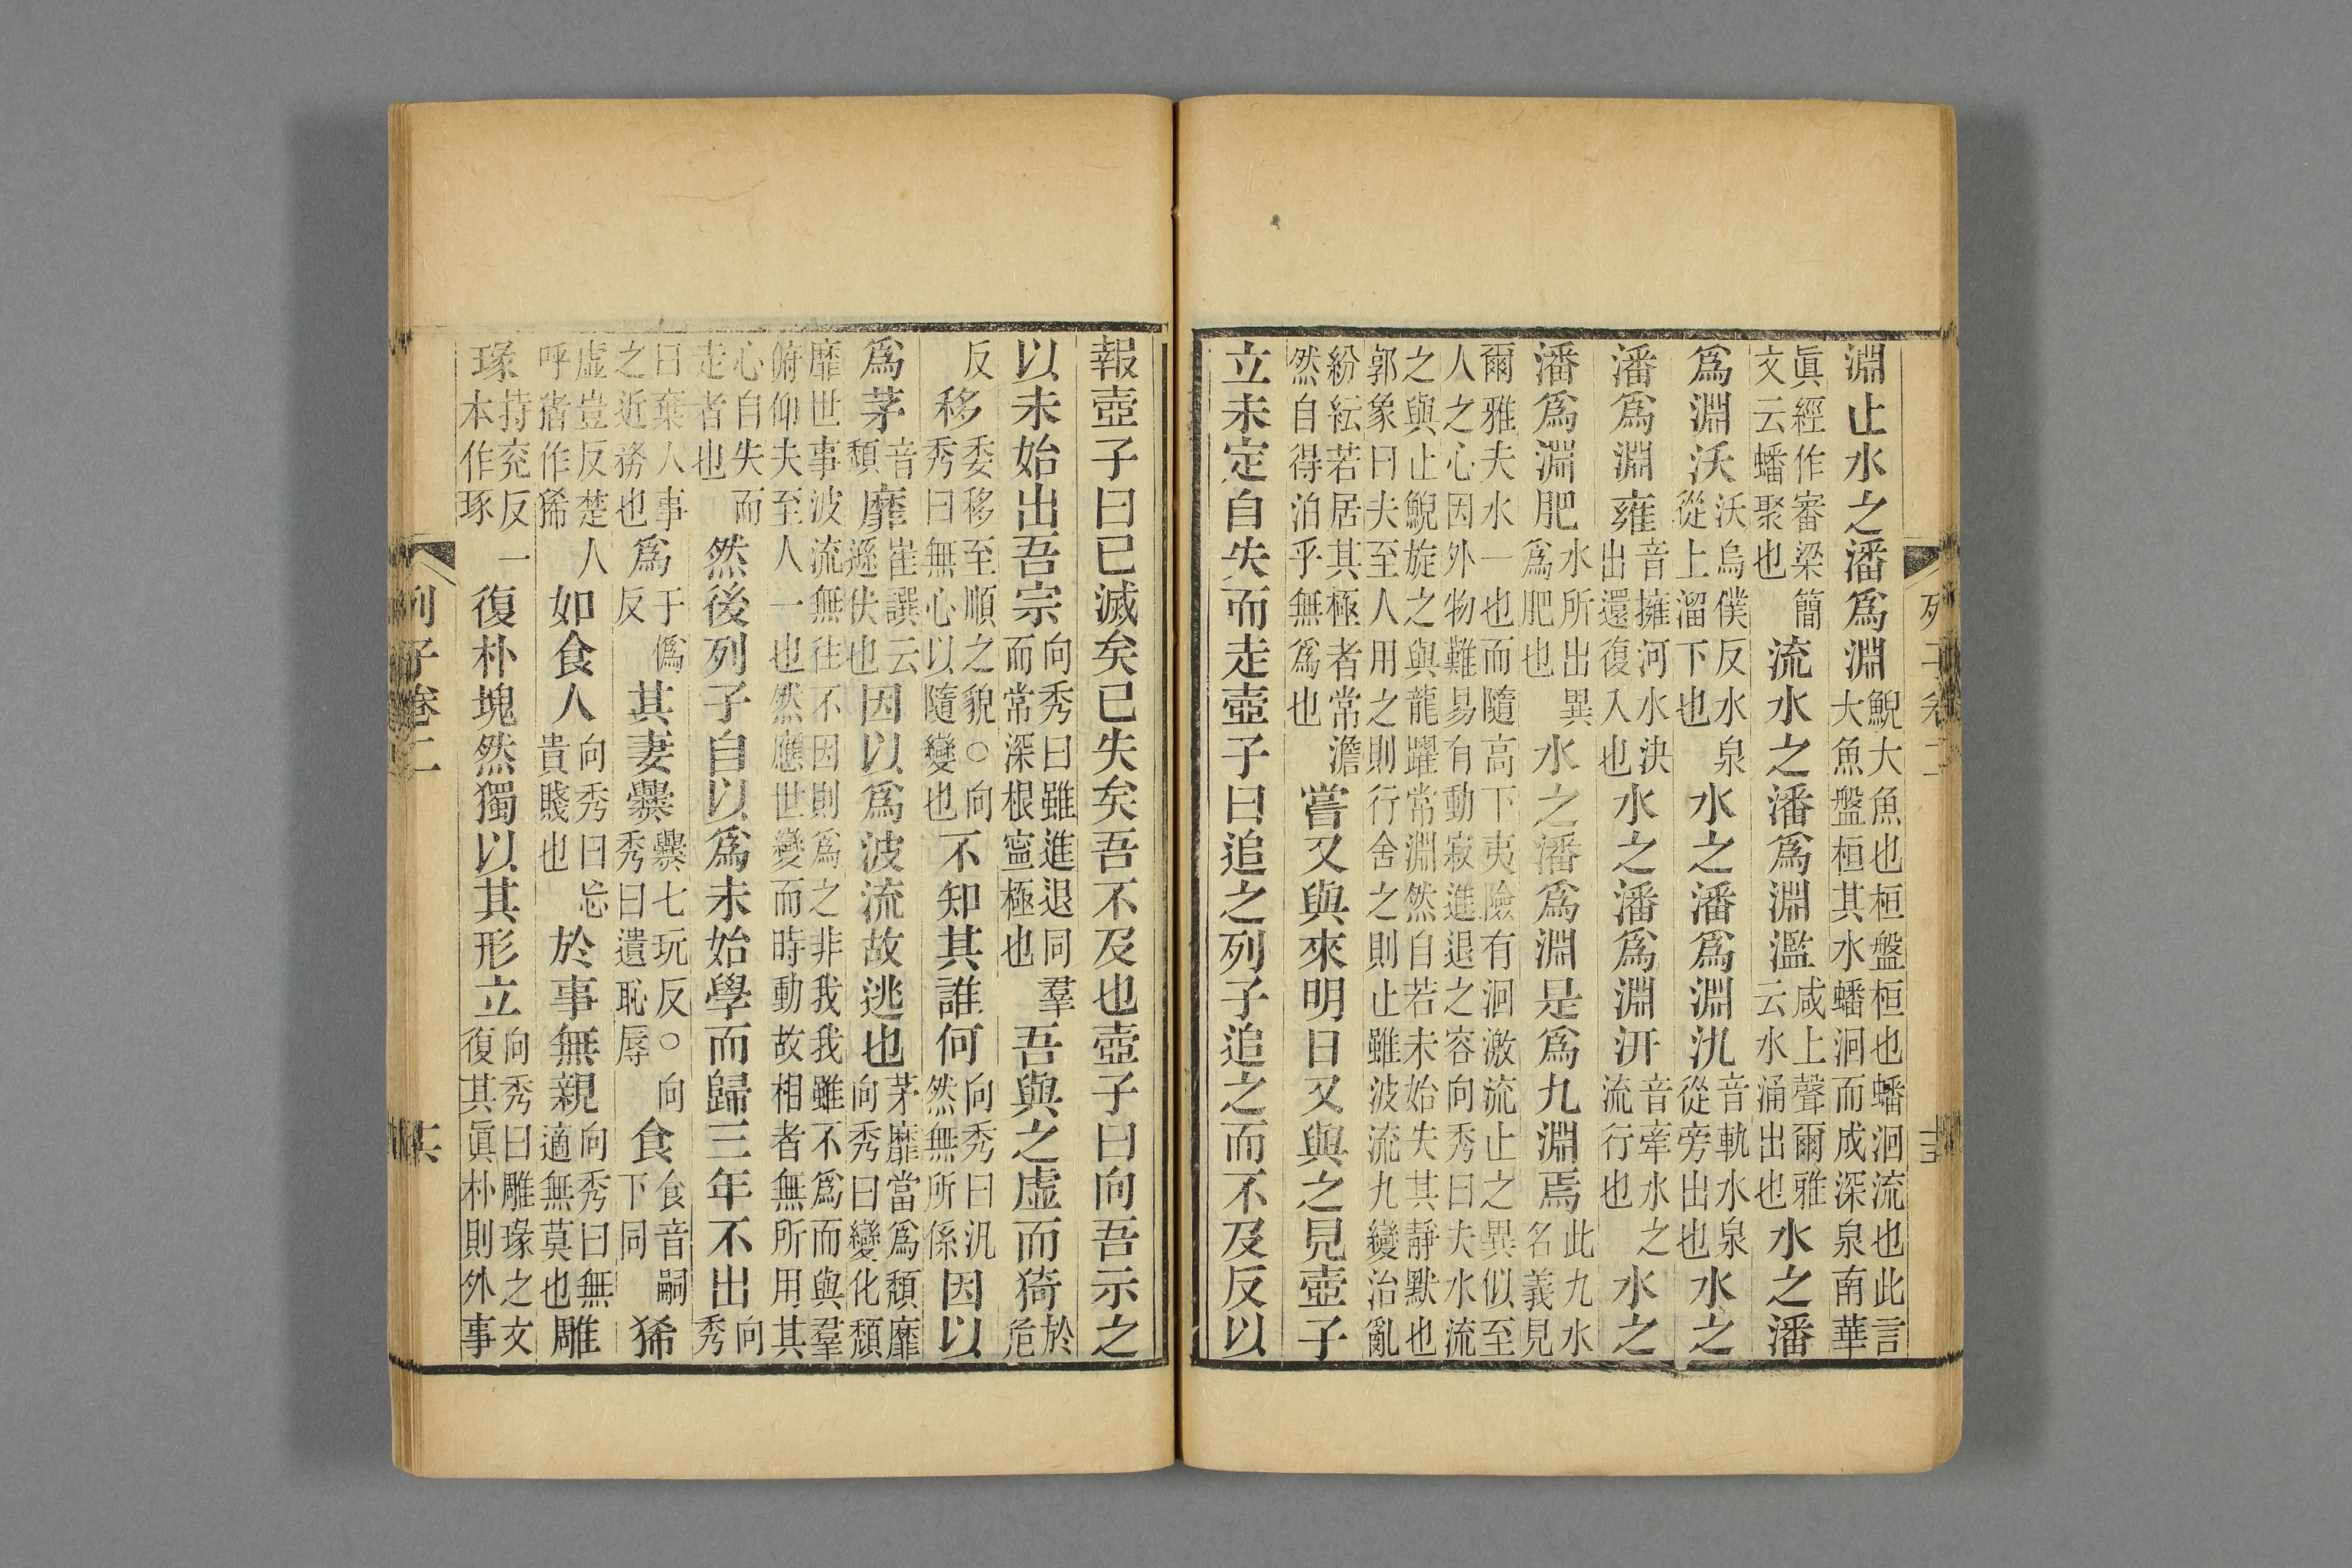 淵止水之潘爲淵鯢大魚也桓盤桓也蟠洄流也此言大魚盤桓其水蟠洄而成深泉南華
眞經作審梁簡文云蟠聚也流水之潘爲淵濫咸上聲爾雅云水涌出也水之潘
爲淵沃沃烏僕反水泉從上溜下也水之潘爲淵氿音軌水泉從旁出也水之
潘爲淵雍音擁河水決出還復入也水之潘爲淵汧音牽水之流行也水之
潘爲淵肥水所出異爲肥也水之潘爲淵是爲九淵焉此九水名義見
爾雅夫水一也而隨高下夷險有洄激流止之異似至人之心因外物難易有動寂進退之容向秀曰夫水流
之與止鯢旋之與龍躍常淵然自若未始失其靜默也郭象曰夫至人用之則行舍之則止雖波流九變治亂
紛紜若居其極者常澹然自得泊乎無爲也嘗又與來明日又與之見壺子
立未定自失而走壺子曰追之列子追之而不及反以
報壺子曰已滅矣已失矣吾不及也壺子曰向吾示之
以未始出吾宗向秀曰雖進退同羣而常深根寧極也吾與之虛而猗於危
反移委移至順之貌○向秀曰無心以隨變也不知其誰何向秀曰汎然無所係因以
爲茅音頹靡崔譔云遜伏也因以爲波流故逃也茅靡當爲頹靡向秀曰變化頹
靡世事波流無往不因則爲之非我我雖不爲而與羣俯仰夫至人一也然應世變而時動故相者無所用其
心自失而走者也然後列子自以爲未始學而歸三年不出向秀
曰棄人事之近務也爲于僞反其妻爨爨七玩反○向秀曰遺恥辱食食音嗣下同狶
虛豈反楚人呼猪作狶如食人向秀曰忘貴賤也於事無親向秀曰無適無莫也雕
瑑持兗反一本作琢復朴塊然獨以其形立向秀曰雕瑑之文復其眞朴則外事
列子卷二